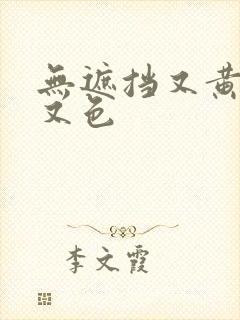 無遮挡又黄
又色
李文霞